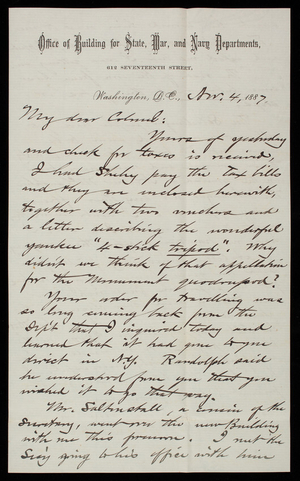 Office of Building for State, War, and Navy Departments,
612 SEVENTEENTH STREET,
Washington, D.C., Nov. 4, 1887
My dear Colonel:
Yours of yesterday
and check for taxes is received,
I had Sheley pay the tax bills
and they are inclosed herewith,
together with two vouchers and
a letter describing the wonderful
yankee "4-stick tripod". Why
didn't we think of that appellation
for the Monument quadruped?
Your order for travelling was
so long coming back from the
Dept that I inquired today and
learned that it had gone to you
direct in N.Y. Randolph said
he understood from you that you
wished it to go that way.
Mr. Saltonstall, a cousin of the
Secretary, went over the new Building
with me this forenoon. I met the
Sec'y going to his office with him